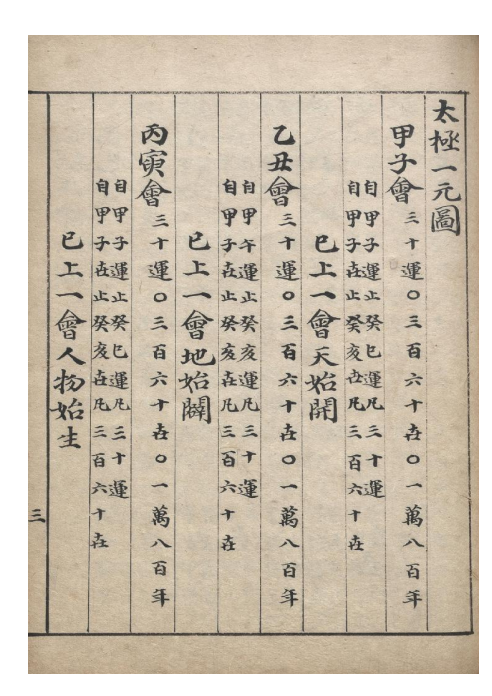 太極一元圖
甲子會 三十運〇三百六十卋〇一萬八百年
自甲子運止癸巳運凢三十運
自甲子卋止癸亥卋凢三百六十卋
已上一會天始開
乙丑會 三十運〇三百六十卋〇一萬八百年
自甲午運止癸亥運凢三十運
自甲子卋止癸亥卋凢三百六十卋
已上一會地始闢
丙寅會 三十運〇三百六十卋〇一萬八百年
自甲子運止癸巳運凢三十運
自甲子卋止癸亥卋凢三百六十卋
已上一會人物始生
三